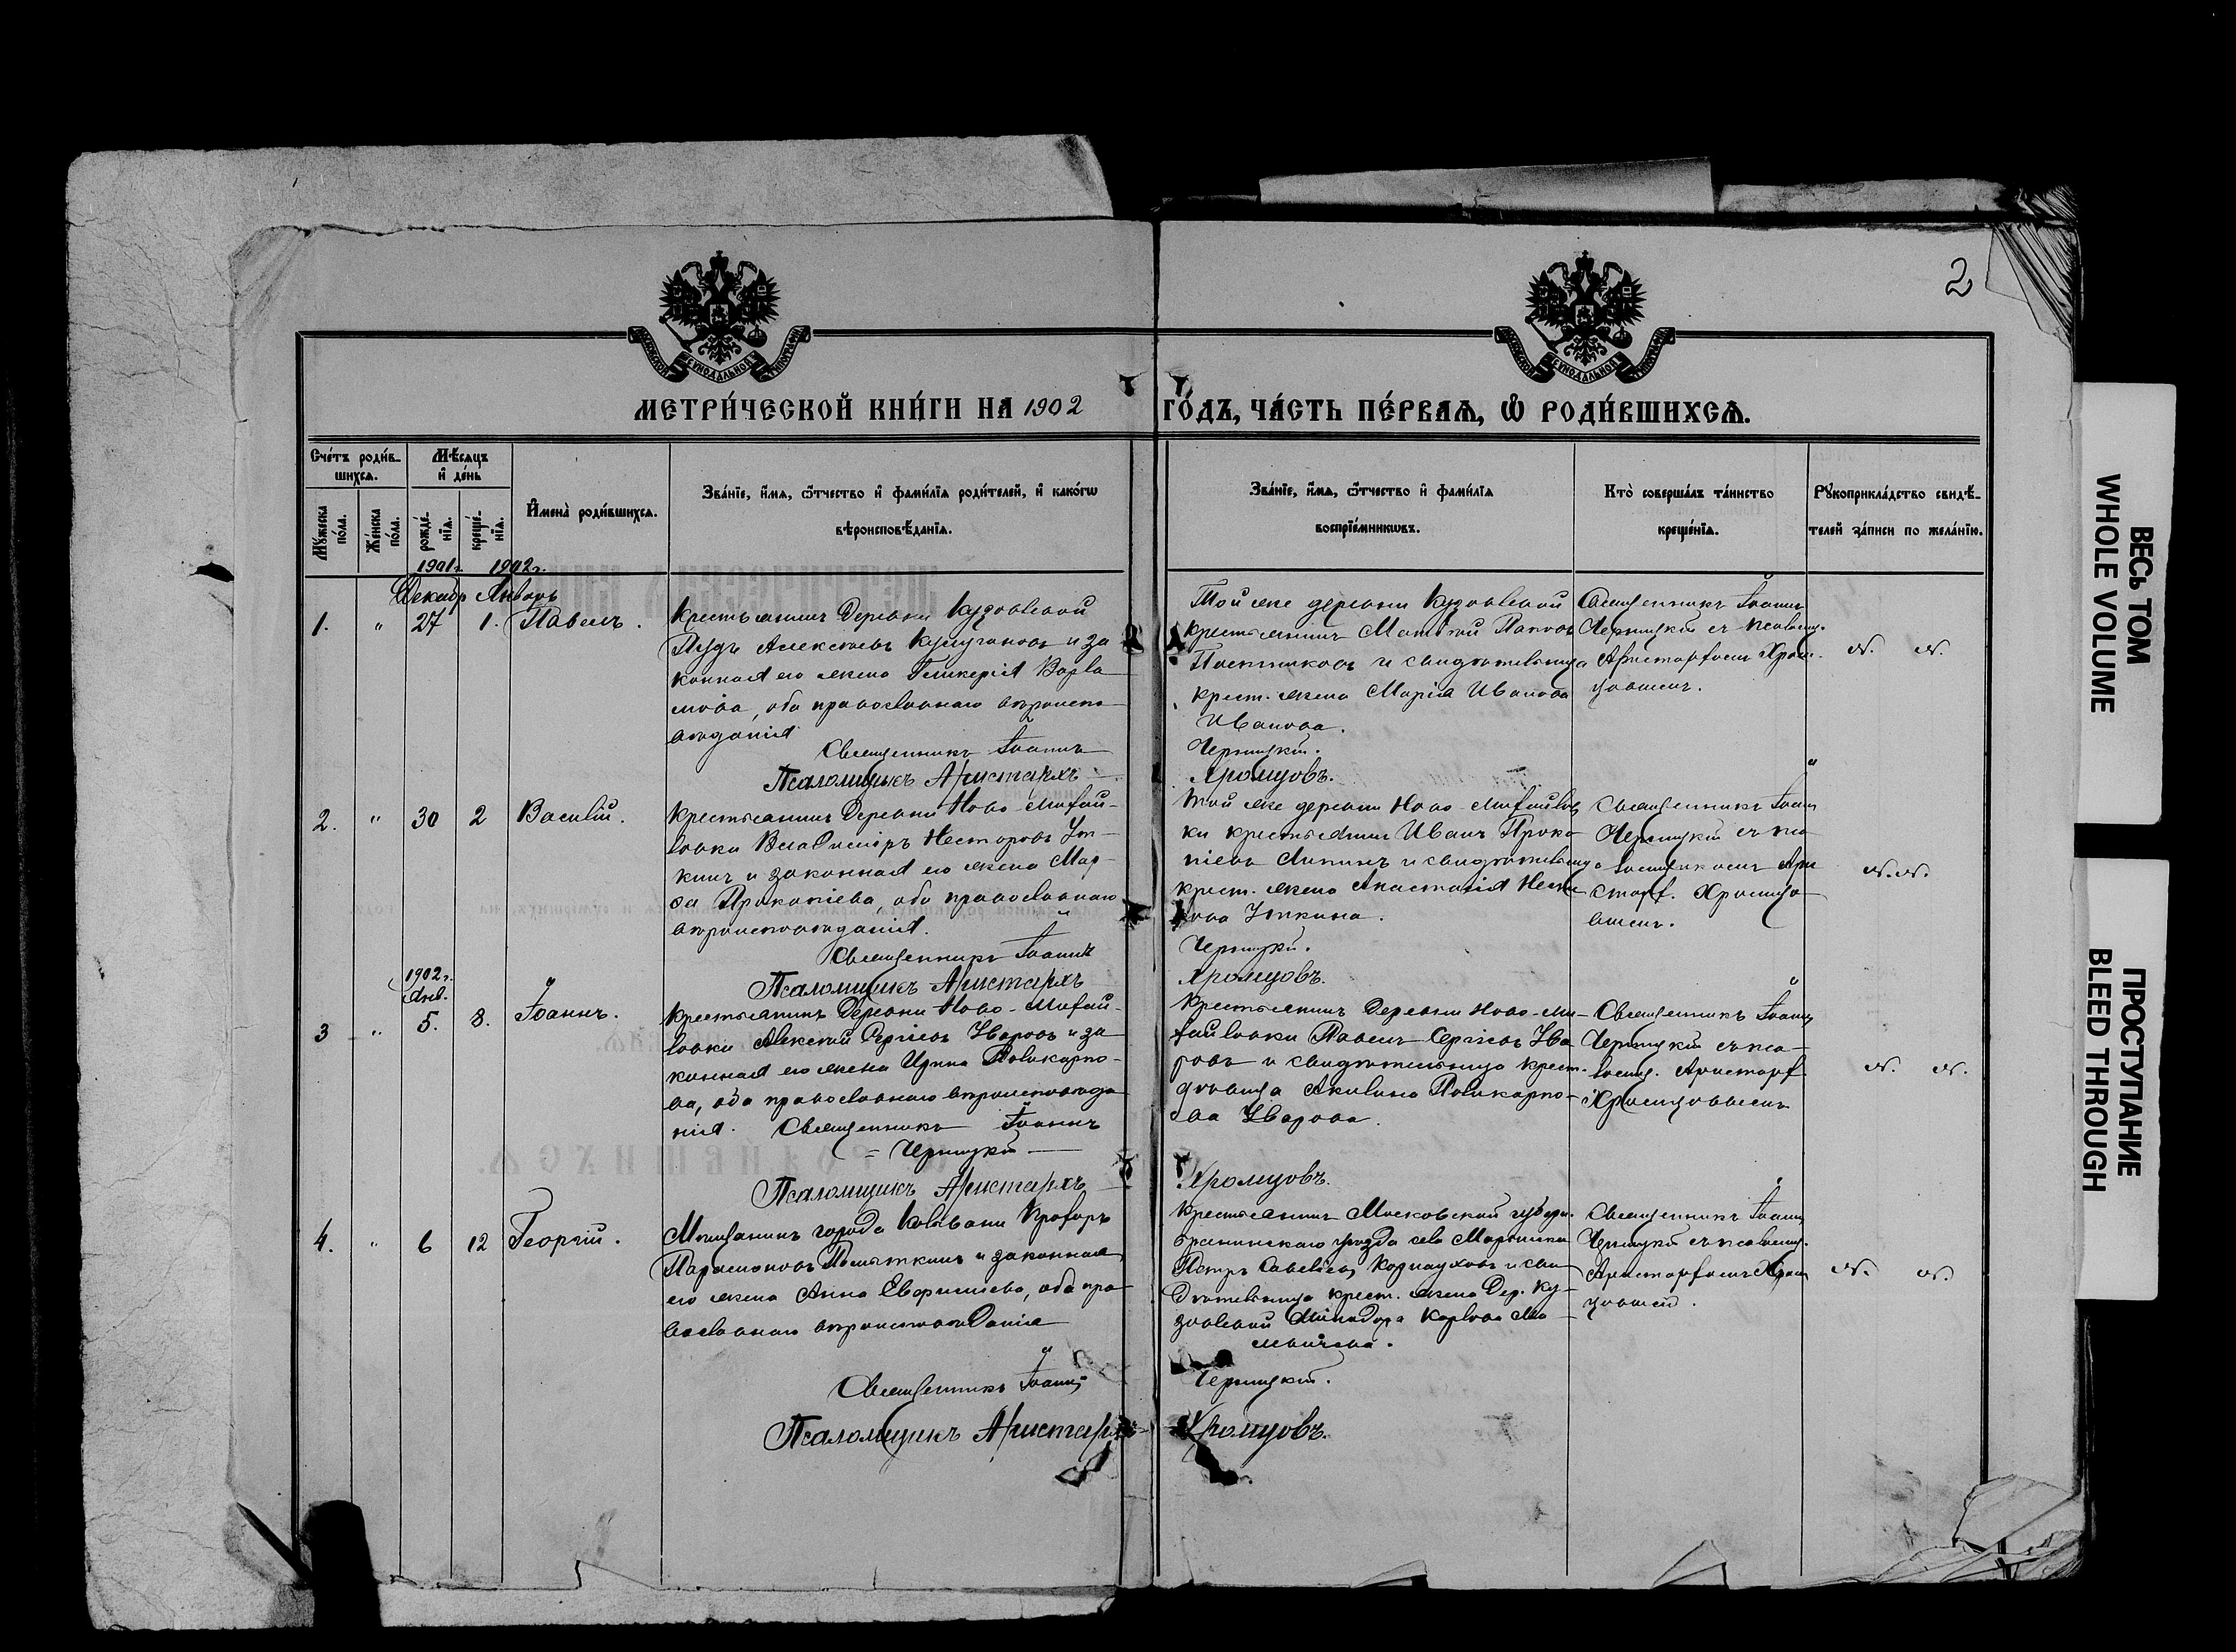 2
МЕТРИ́ЧЕСКОЙ КНИ́ГИ НА 1902 ГО́ДЪ, ЧА́СТЬ ПЕ́РВАЯ, Ѡ РОДИ́ВШИХСЯ.
Сче́тъ роди́в-
шихся.
Мꙋ́жеска по́ла.
Же́нска по́ла.
Мѣ́сяцъ
и́ де́нь
рожде́-
нїя.
креще́-
нїя.
И́мена̀ роди́вшихся.
Зва́нїе, и́мя, ѻ́тчество и́ фами́лїя роди́телей, и́ како́гѡ
вѣроисповѣ́данїя.
Зва́нїе, и́мя, ѻ́тчество и́ фами́лїя
воспрїе́мникѡвъ.
Кто̀ соверша́лъ та́инство
креще́нїя.
Рꙋкоприкла́дство свидѣ́-
телей за́писи по жела́нїю.
1901г. 1902г.
Декабр Январь
1. " 27 1. Павелъ.
Крестьянинъ деревни Кузовлевой
Пудъ Алексѣевъ и за
конная его жена Гликерія Варла
мова, оба православнаго вѣроиспо-
вѣданія
Священникъ Іоаннъ
Псаломщикъ Аристархъ
Той же деревни Кузовлевой
крестьянинъ Матвѣй
и свидѣтельница
крест. жена Марія Иванова
Иванова.
Черницкій.
Хромцовъ.
Священникъ Іоаннъ
Черницкій съ псаломщ.
Аристархомъ Хром-
цовымъ.
2. " 30 2 Василій.
Крестьянинъ деревни Ново-Михай-
ловки Владиміръ Несторовъ Ут-
кинъ и законная его жена Мар-
ѳа Прокопіева, оба православнаго
вѣроисповѣданія.
Священникъ Іоаннъ
Псаломщикъ Аристархъ
Той же деревни Ново-Михайлов
ки крестьянинъ Иванъ Проко-
піевъ и свидѣтельница
крест. жена Анастасія Несто
рова Уткина.
Черницкій.
Хромцовъ.
Священникъ Іоаннъ
Черницкій съ пса-
ломщикомъ Ари
старх. Хромцо-
вымъ.
1902г.
Янв.
3 " 5. 8. Іоаннъ.
Крестьянинъ деревни Ново-Михай-
ловки Алексѣй Сергіевъ Уваровъ и за
конная его жена Ирина Поликарпо-
ва, оба православнаго вѣроисповѣда
нія. Священникъ Іоаннъ
= Черницкій —
Псаломщикъ Аристархъ
Крестьянинъ деревни Ново-Ми-
хайловки Павелъ Сергіевъ Ува
ровъ и свидѣтельница крест.
дѣвица Акилина Поликарпо-
ва Уварова.
Хромцовъ.
Священникъ Іоаннъ
Черницкій съ пса-
ломщ. Аристарх.
Хромцовымъ
4. " 6 12 Георгій.
Мѣщанинъ города Колывани
Парамоновъ и законная
его жена Анна, оба пра-
вославнаго вѣроисповѣданія
Священникъ Іоаннъ
Псаломщикъ Аристархъ
Крестьянинъ Московской губерн.
уѣзда села
Петръ Савеліевъ и сви
дѣтельница крест. жена Дер. Ку-
зовлевой Карпова
Черницкій.
Хромцовъ.
Священникъ Іоаннъ
Черницкій съ псаломщ.
Аристархомъ Хром
цовымъ.
ВЕСЬ ТОМ
WHOLE VOLUME
ПРОСТУПАНИЕ
BLEED THROUGH